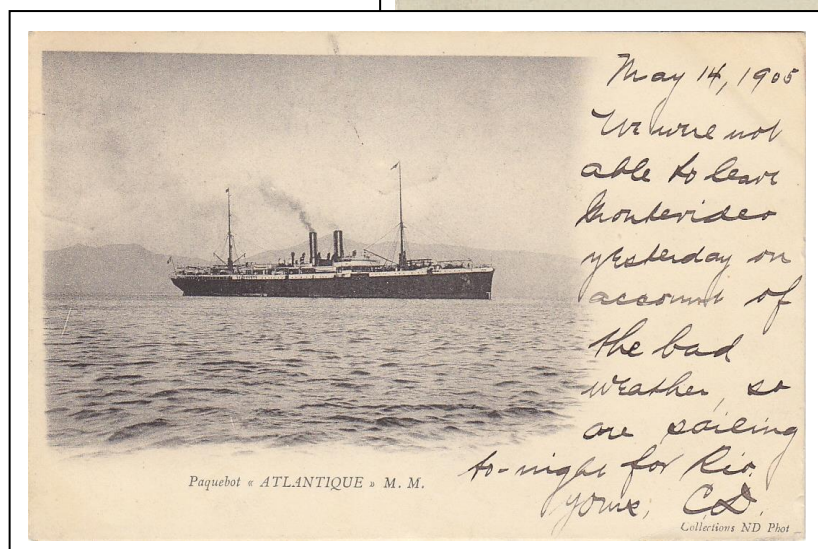 May 14, 1905
We were not
able to leave
Montevideo
yesterday on
account of
the bad
weather, so
are sailing
to-night for Rio.
Yours, C.D.
Paquebot « ATLANTIQUE » M. M.
Collections ND Phot